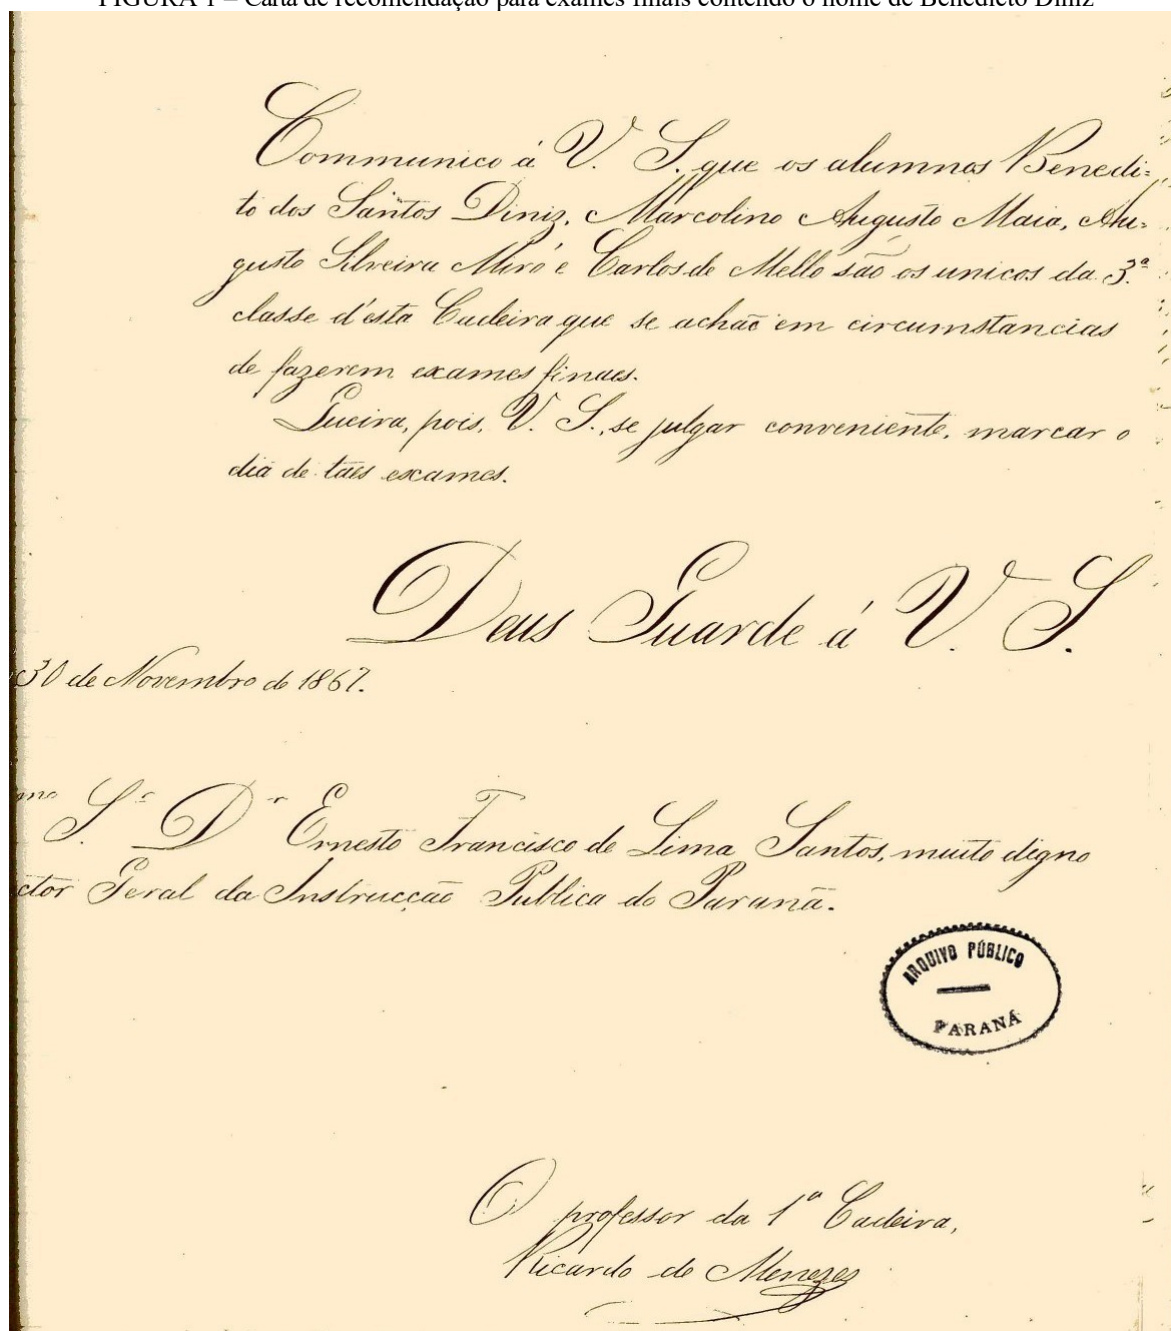 FIGURA 1 – Carta de recomendação para exames finais contendo o nome de Benedicto Diniz
Communico á V. S. que os alumnos Benedi:
to dos Santos Diniz, Marcolino Augusto Maia, Au:
gusto Silveira Miró e Carlos de Mello são os unicos da 3.ª
classe d'esta Cadeira que se achão em circumstancias
de fazerem exames finaes.
Queira, pois, V. S., se julgar conveniente, marcar o
dia de taes exames.
Deus Guarde á V. S.
30 de Novembro de 1867.
mo S.r D.r Ernesto Francisco de Lima Santos, muito digno
ctor Geral da Instrucção Publica do Paraná.
ARQUIVO PÚBLICO
PARANÁ
O professor da 1ª Cadeira,
Ricardo de Menezes